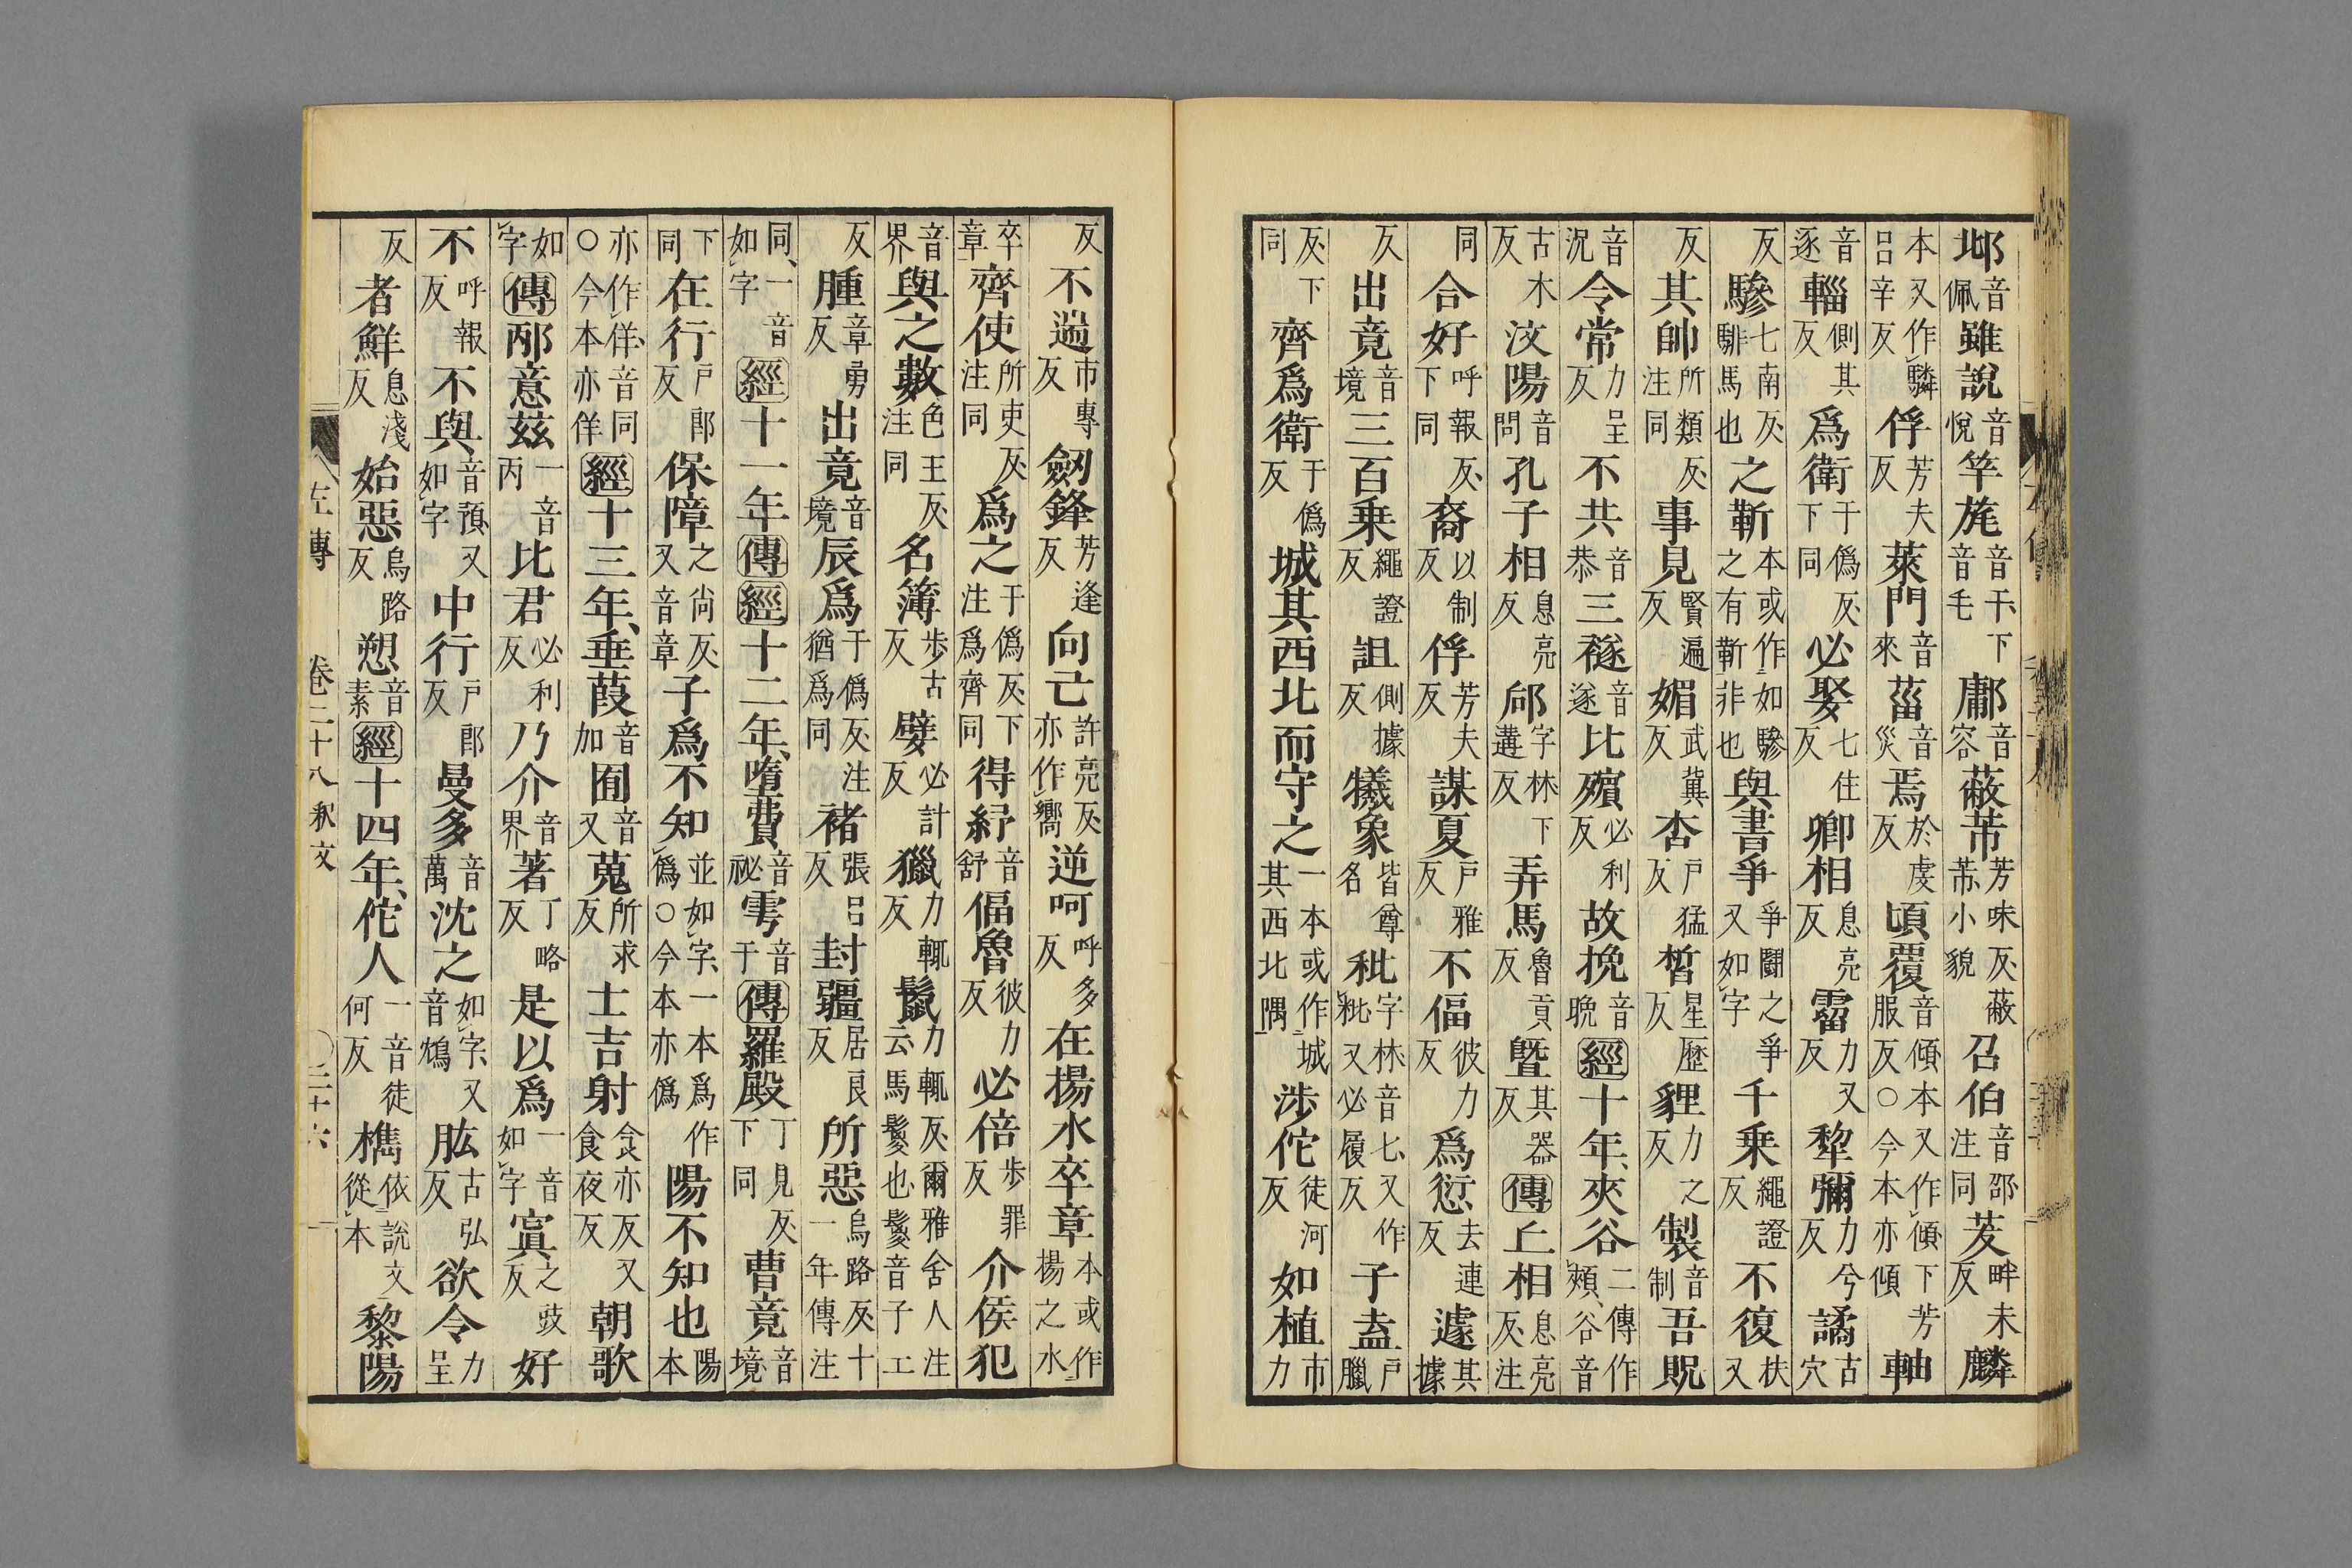 邶音佩雖說音悅竿旄音干下音毛鄘音容蔽芾芳味反蔽芾小貌召伯音邵注同茇畔未反麟
本又作驎呂辛反俘芳夫反萊門音來菑音災焉於虔反頃覆音傾本又作傾下芳服反○今本亦傾軸
音逐輜側其反爲衛于僞反下同必娶七住反卿相息亮反霤力又反犂彌力兮反譎古穴
反驂七南反騑馬也之靳本或作如驂之有靳非也與書爭爭鬪之爭又如字千乗繩證反不復扶又
反其帥所類反注同事見賢遍反媚武冀反杏戶猛反皙星歷反貍力之反製音制吾貺
音況令常力呈反不共音恭三襚音遂比殯必利反故挽音晚經十年、夾谷二傳作頰谷音
古木反汶陽音問孔子相息亮反郈字林下遘反弄馬魯貢反曁其器反傳丄相息亮反注
同合好呼報反下同裔以制反俘芳夫反謀夏戶雅反不偪彼力反爲愆去連反遽其據
反出竟音境三百乗繩證反詛側據反犧象皆尊名秕字林音匕又作粃又必履反子盍戶臘
反下同齊爲衛于僞反城其西北而守之一本或作城其西北隅涉佗徒河反如植市力
反不遄市專反劒鋒芳逢反向亡許亮反亦作嚮逆呵呼多反在揚水卒章本或作揚之水
卒章齊使所吏反注同爲之于僞反下注爲齊同得紓音舒偪魯彼力反必倍步罪反介侯犯
音界與之數色王反注同名簿步古反嬖必計反獵力輒反鬛力輒反爾雅舍人注云馬鬉也鬉音子工
反腫章勇反出竟音境辰爲于僞反注猶爲同褚張呂反封疆居良反所惡烏路反十一年傳注
同、一音如字經十一年傳經十二年、墮費音祕雩音于傳羅殿丁見反下同曹竟音境
下同在行戶郎反保障之尚反又音章子爲不知並如字、一本爲作僞○今本亦僞陽不知也陽本
亦作佯音同○今本亦佯經十三年、垂葭音加囿音又蒐所求反士吉射食亦反又食夜反朝歌
如字傳邴意茲一音丙比君必利反乃介音界著丁略反是以爲一音如字寘之豉反好
不呼報反不與音預又如字中行戶郎反曼多音萬沈之如字又音鴆肱古弘反欲令力呈
反者鮮息淺反始惡烏路反愬音素經十四年、佗人一音徒何反檇依說文從木黎陽
左傳 卷二十八釈文 三十六